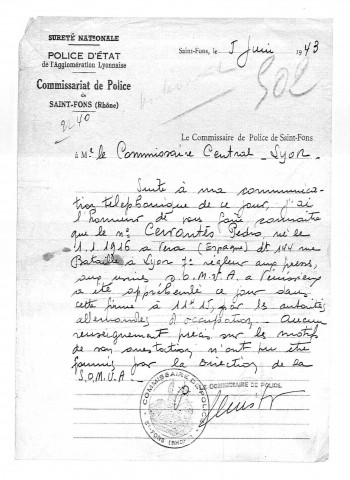 SURETÉ NATIONALE
POLICE D'ÉTAT
de l'Agglomération Lyonnaise
Commissariat de Police
de
SAINT-FONS (Rhône)
2240
Saint-Fons, le 5 Juin 1943
502
Le Commissaire de Police de Saint-Fons
à Mr le Commissaire Central - Lyon -
Suite à ma communica-
tion téléphonique de ce jour, j'ai
l'honneur de vous faire connaître
que le né Cervantés Pedro, né le
1.1.1916 à Vera (Espagne) dt 144 rue
Bataille à Lyon 7e régleur aux presses,
aux usines S.O.M.U.A. à Vénissieux
a été appréhendé ce jour dans
cette firme à 11h15, par les autorités
allemandes d'occupation. Aucun
renseignement précis sur les motifs
de son arrestation n'ont pu être
fournis par la Direction de la
S.O.M.U.A.
LE COMMISSAIRE DE POLICE,
COMMISSARIAT DE POLICE
ST-FONS (RHONE)